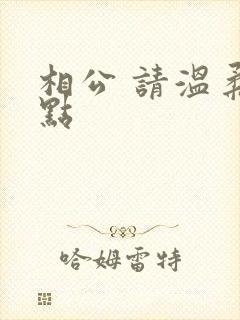 相公 請溫柔
點
哈姆雷特